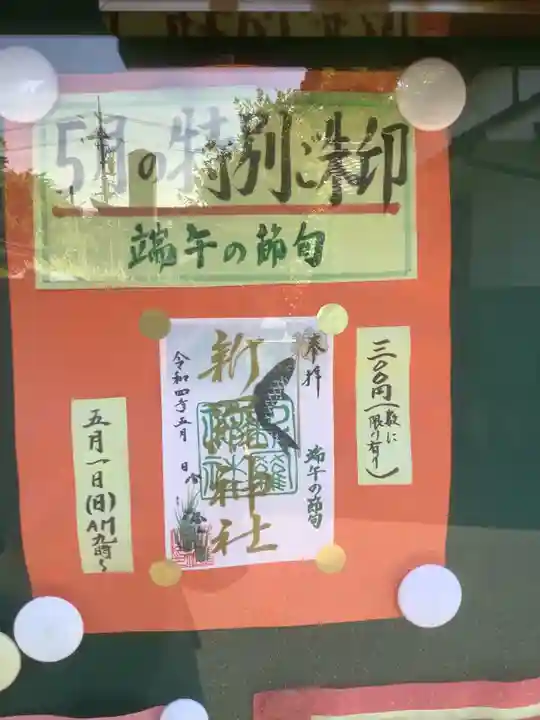 5月の特別御朱印
端午の節句
三〇〇円(数に限り有り)
奉拝
端午の節句
神社
令和四年五月 日
五月一日(日)AM九時〜